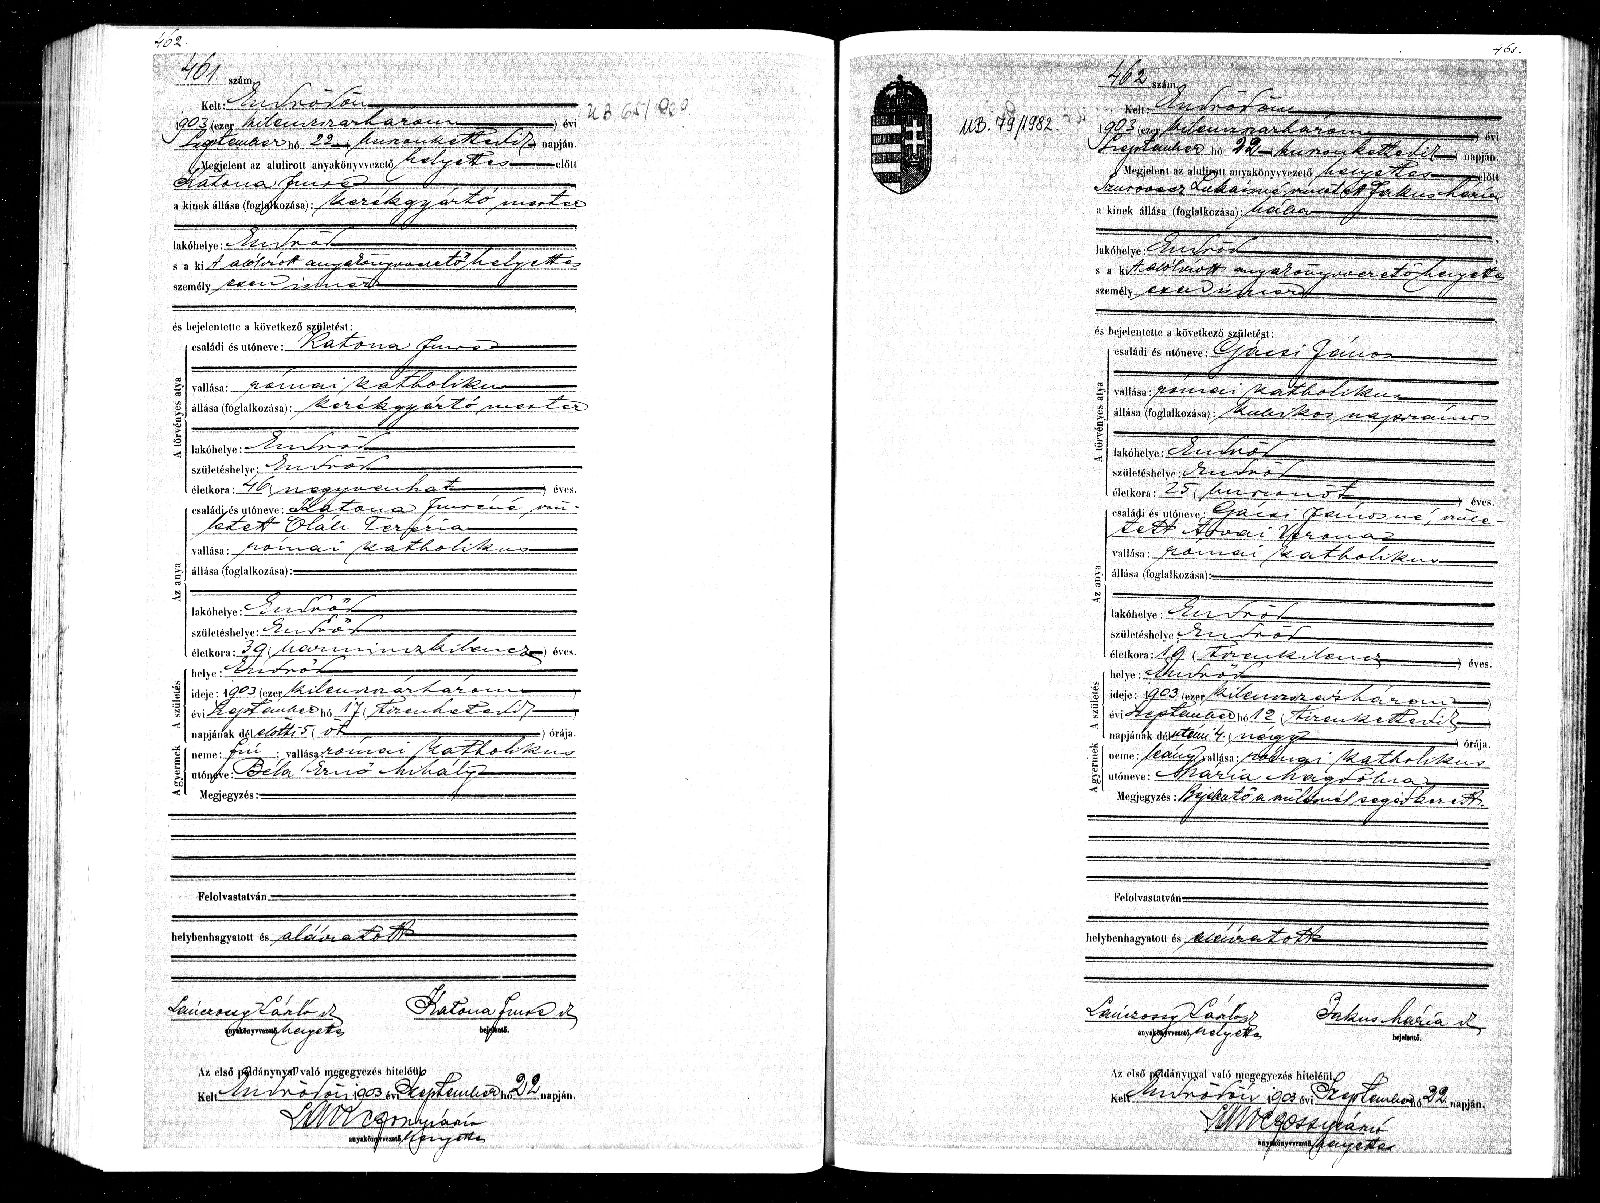 462.
461. szám.
Kelt: Endrődön
1903 (ezer kilenszázhárom) évi
Szeptember hó 22 huszonkettedik napján.
Megjelent az alulirott anyakönyvvezető helyettes előtt
Katona Imre
a kinek állása (foglalkozása): kerékgyártó mester
lakóhelye: Endrőd
s a kit alólirott anyakönyvvezető helyettes
személyesen ismer
és bejelentette a következő születést:
A törvényes atya
családi és utóneve: Katona Imre
vallása: római katholikus
állása (foglalkozása): kerékgyártó mester
lakóhelye: Endrőd
születéshelye: Endrőd
életkora: 46 (negyvenhat) éves.
Az anya
családi és utóneve: Katona Imréné, szü-
letett Oláh Terézia
vallása: római katholikus
állása (foglalkozása):
lakóhelye: Endrőd
születéshelye: Endrőd
életkora: 39 (harminczkilencz) éves.
A születés
helye: Endrőd
ideje: 1903 (ezer kilenszázhárom)
évi Szeptember hó 17 (tizenhetedik)
napjának délelőtti 5 (öt) órája.
A gyermek
neme: fiú; vallása: római katholikus
utóneve: Béla Ernő Mihály
Megjegyzés:
Felolvastatván
helybenhagyatott és aláiratott
Lánczossy László sk Katona Imre sk
anyakönyvvezető. helyettes bejelentő.
Az első példánynyal való megegyezés hiteléül
Kelt Endrődön 1903 évi Szeptember hó 22 napján.
anyakönyvvezető. helyettes
461.
462 szám.
MB. 79/1982.
Kelt: Endrődön
1903 (ezer kilenszázhárom) évi
Szeptember hó 22 huszonkettedik napján.
Megjelent az alulirott anyakönyvvezető helyettes előtt
Lukácsné született Jakus Mária
a kinek állása (foglalkozása): bába
lakóhelye: Endrőd
s a kit alólirott anyakönyvvezető helyettes
személyesen ismer
és bejelentette a következő születést:
A törvényes atya
családi és utóneve: Gácsi János
vallása: római katholikus
állása (foglalkozása): kubikos napszámos
lakóhelye: Endrőd
születéshelye: Endrőd
életkora: 25 (huszonöt) éves.
Az anya
családi és utóneve: Gácsi Jánosné, szüle-
tett Tóvai Verona
vallása: római katholikus
állása (foglalkozása):
lakóhelye: Endrőd
születéshelye: Endrőd
életkora: 19 (tizenkilencz) éves.
A születés
helye: Endrőd
ideje: 1903 (ezer kilenszázhárom)
évi Szeptember hó 12 (tizenkettedik)
napjának délutáni 4 (négy) órája.
A gyermek
neme: leány; vallása: római katholikus
utóneve: Mária Magdolna
Megjegyzés: Bejelentő a szülésnél segédkezett.
Felolvastatván
helybenhagyatott és aláiratott
Lánczossy László sk Jakus Mária sk
anyakönyvvezető. helyettes bejelentő.
Az első példánynyal való megegyezés hiteléül
Kelt Endrődön 1903 évi Szeptember hó 22 napján.
anyakönyvvezető. helyettes